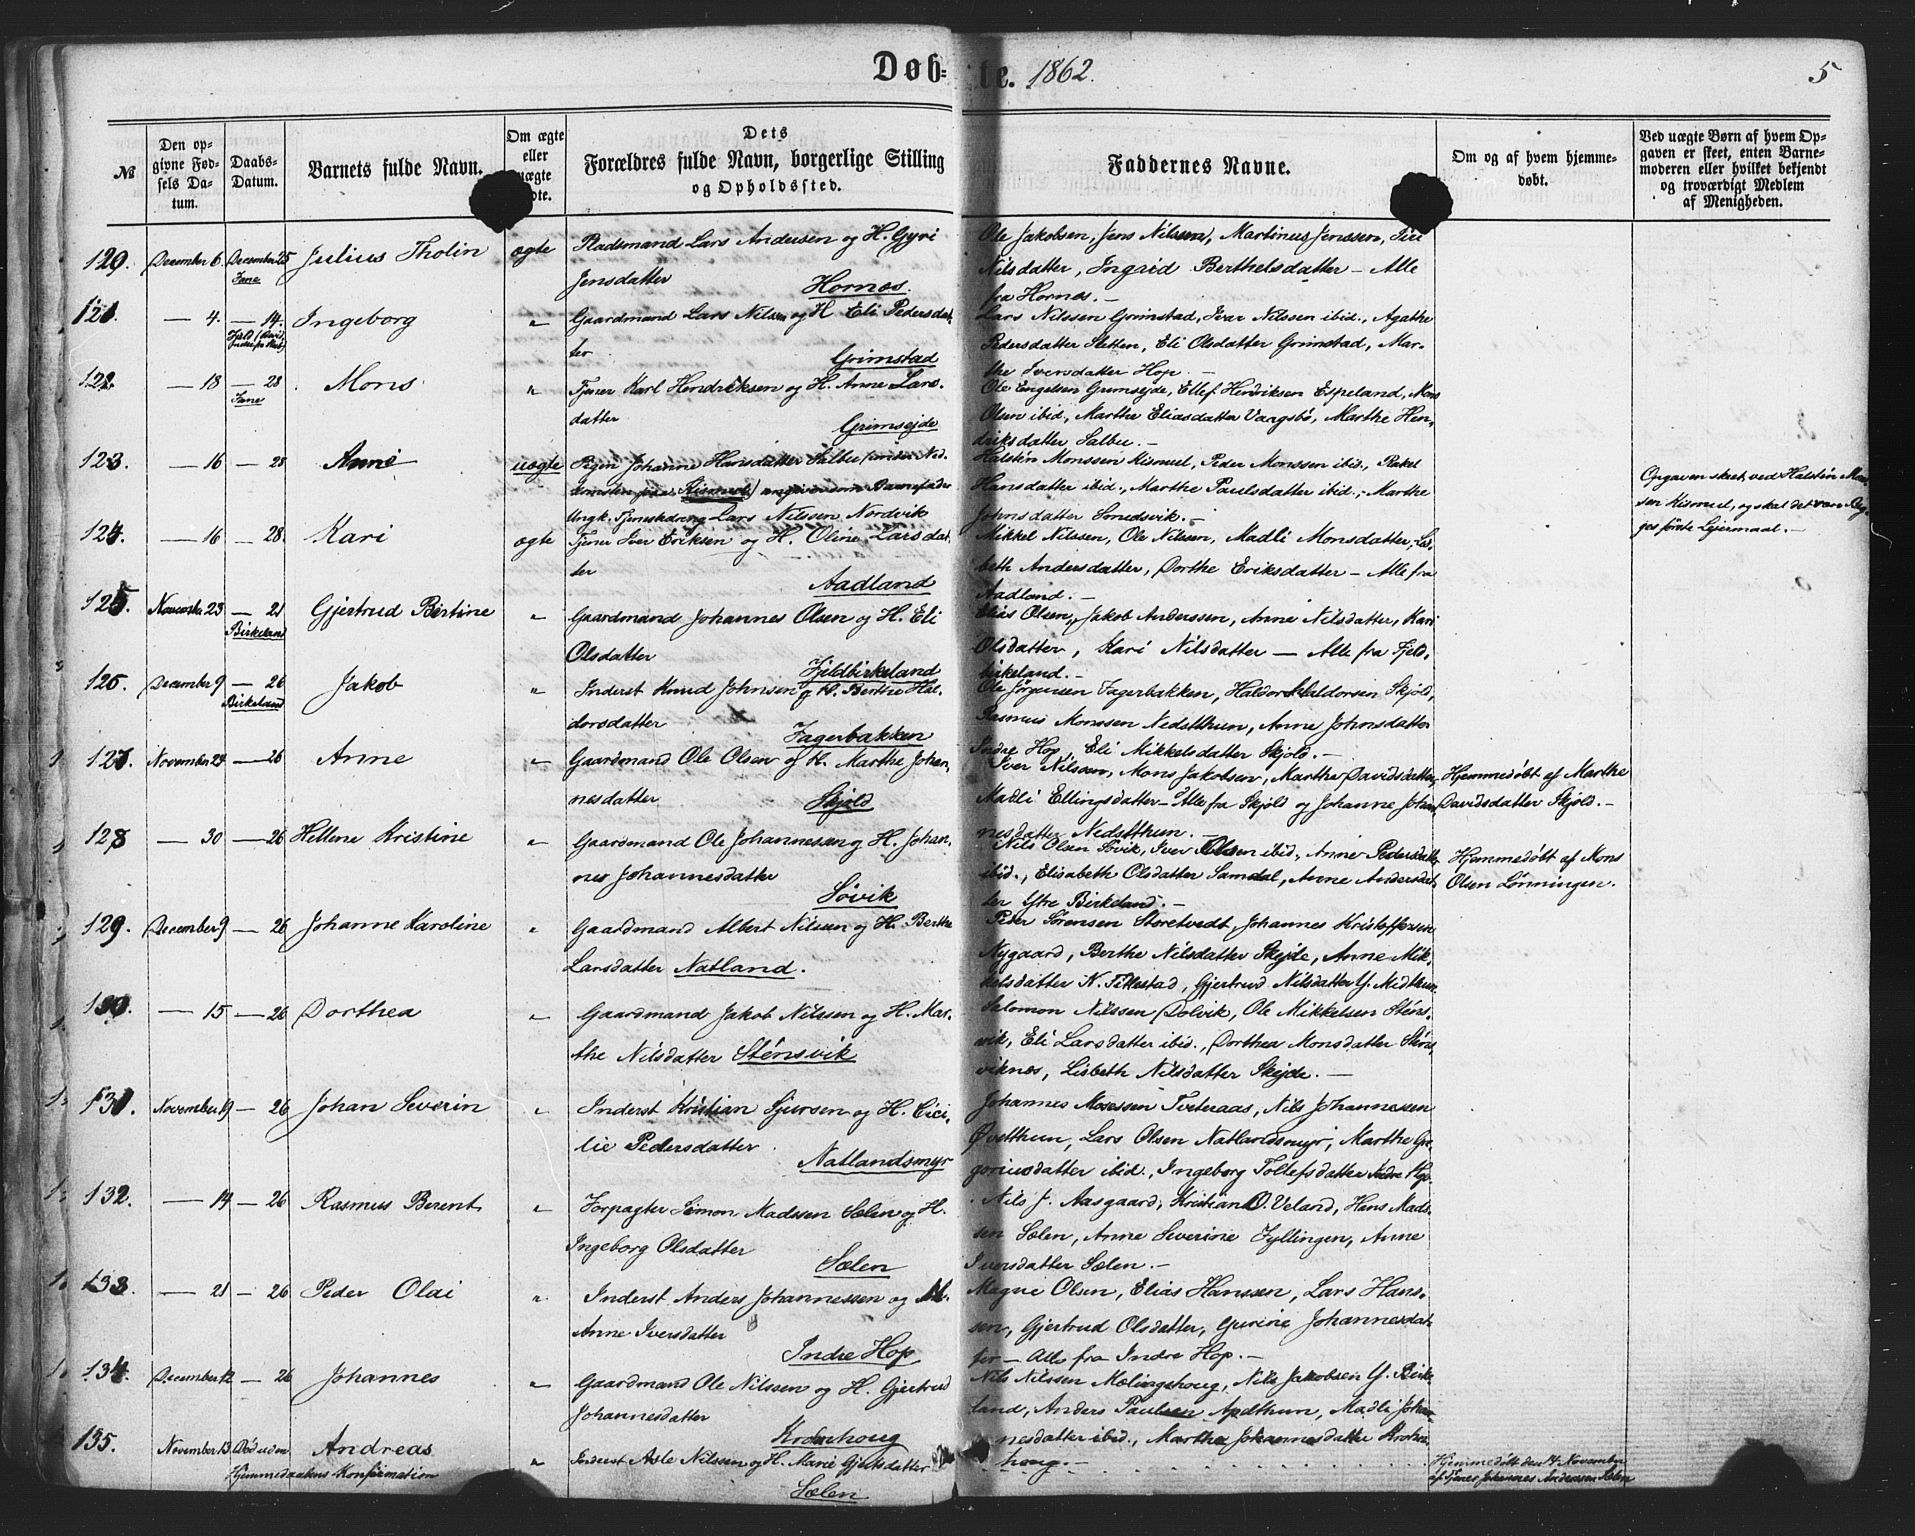 Døbte. 1862. 5
№
Den opgivne Fødsels Datum.
Daabs-Datum.
Barnets fulde Navn.
Om ægte eller uægte
Dets Forældres fulde Navn, borgerlige Stilling og Opholdssted.
Faddernes Navne.
Om og af hvem hjemmedøbt.
Ved uægte Børn af hvem Opgaven er skeet, enten Barnemoderen eller hvilket bekjendt og troværdigt Medlem af Menigheden.
120. December 6. December 25 Fane Julius Tholin ægte
Lars Andersen og H. Gyri
Jensdatter Hornæs.
Ole Jakobsen, Jens Nilssen, Martinus Jenssen, Siri
Nilsdatter, Ingrid Berthelsdatter – Alle
fra Hornæs. –
121. — 4. — 14. Ingeborg "
Gaardmand Lars Nilssen og H Eli Pedersdat-
ter Grimstad
Lars Nilssen Grimstad, Ivar Nilssen ibid., Agathe
Pedersdatter Sletten, Eli Olsdatter Grimstad, Mar-
the Iversdatter Hop. –
122. — 18 — 28 Fane Mons "
Tjener Karl Hendriksen og H. Anne Lars-
datter Grimsejde
Ole Engelsen Grimsejde, Ellef Hendriksen Espeland, Mons
Olsen ibid, Marthe Eliasdatter Vargsbø, Marthe Hen-
driksdatter Salbu. –
123. — 16 — 28 Anne uægte
Pigen Johanne Hansdatter Salbu
Kismul) angiver som Barnefader
Ungk. Lars Nilssen Nordvik
Halsten Monssen Kismul, Peder Monssen ibid., Rakel
Hansdatter ibid., Marthe Paulsdatter ibid., Marthe
Johnsdatter Smedsvik. –
Opgaven skeet ved Halsten Mons-
sen Kismul, og skal det være Beg-
ges første Lejermaal. –
124. — 16 — 28. Kari ægte
Tjener Iver Eriksen og H. Oline Larsdat-
ter Aadland
Mikkel Nilssen, Ole Nilssen, Madli Monsdatter, Lis-
beth Andersdatter, Dorthe Eriksdatter – Alle fra
Aadland. –
125. November 23 — 21 Birkeland Gjertrud Bertine "
Gaardmand Johannes Olsen og H. Eli
Olsdatter Fjeldbirkeland
Elias Olsen, Jakob Anderssen, Anne Nilsdatter, Kari
Olsdatter, Kari Nilsdatter – Alle fra Fjeld-
birkeland. –
126. December 9 — 26 Birkeland Jakob "
Inderst Knud Johnsen og H. Bertre Hal-
dorsdatter Fagerbakken
Ole Jørgensen Fagerbakken, Haldor Haldorsen Skjold,
Rasmus Monssen Nedstthun, Anne Johnsdatter
Indre Hop, Eli Mikkelsdatter Skjold. –
127. November 24 — 26 Anne "
Gaardmand Ole Olsen og H. Marthe Johan-
nesdatter Skjold
Iver Nilssen, Mons Jakobsen, Marthe Davidsdatter,
Madli Ellingsdatter – Alle fra Skjold og Johanne Johan-
nesdatter Nedstthun. –
Hjemmedøbt af Marthe
Davidsdatter Skjold. –
128 — 30 — 26 Hellene Kristine "
Gaardmand Ole Johannessen og H. Johan-
ne Johannesdatter Søvik
Nils Olsen Søvik, Iver Olsen ibid., Anne Pedersdatter
ibid., Elisabeth Olsdatter Samdal, Anne Andersdat-
ter Ytre Birkeland. –
Hjemmedøbt af Mons
Olsen Lønningen.
129. December 9 — 26 Johanne Karoline "
Gaardmand Albert Nilssen og H. Berthe
Larsdatter Natland.
Peter Sørensen Storetvedt, Johannes Kristoffersen
Nygaard, Berthe Nilsdatter Skejde, Anne Mik-
kelsdatter N. Titlestad, Gjertrud Nilsdatter Y. Midthun
130. — 15 — 26 Dorthea "
Gaardmand Jakob Nilssen og H. Mar-
the Nilsdatter Stensvik
Salomon Nilssen Dolvik, Ole Mikkelsen Stens-
vik, Eli Larsdatter ibid., Dorthea Monsdatter Stens-
viknes, Lisbeth Nilsdatter Skejde. –
131. November 19 — 26 Johan Severin "
Inderst Kristian Sjursen og H. Cici-
lie Pedersdatter Natlandsmyr
Johannes Mosessen Tveteraas, Nils Johannesen
Øvstthun, Lars Olsen Natlandsmyr, Marthe Gre-
goriusdatter ibid., Ingeborg Tollefsdatter Indre Hop.
132. — 14 — 26 Rasmus Berent "
Forpagter Simon Madssen Sælen og H.
Ingeborg Olsdatter Sælen
Nils J. Aasgaard, Kristian O. Veland, Hans Mads-
sen Sælen, Anne Severine Fyllingen, Anne
Iversdatter Sælen. –
133. — 21 — 26 Peder Olai "
Inderst Anders Johannessen og H.
Anne Iversdatter Indre Hop
Magne Olsen, Elias Hanssen, Lars Hans-
sen, Gjertrud Olsdatter, Gurine Johannesdat-
ter – Alle fra Indre Hop. –
134. December 12 — 26 Johannes "
Gaardmand Ole Nilssen og H. Gjertrud
Johannesdatter Krohnhoug
Nils Nilssen Mølingshoug, Nils Jakobsen Y. Birke-
land, Anders Paulsen Apelthun, Madli Johan-
nesdatter ibid., Marthe Johannesdatter Krohn-
houg. –
135. November 13. Død uden Hjemmedaabens Konfirmation Andreas "
Inderst Asle Nilssen og H. Marie Gjertsdatter
Sælen
Hjemmedøbt den 14 November
af Tjener Johannes Anderssen Sælen